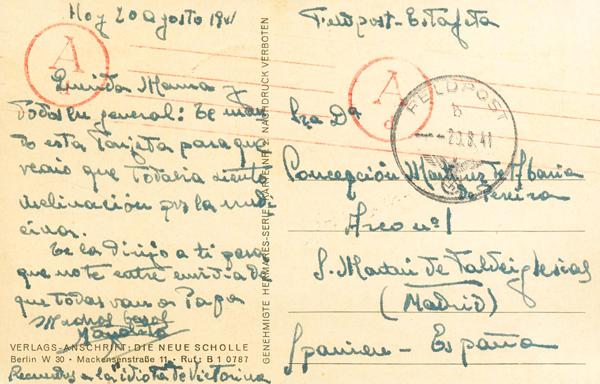 Hoy 20 agosto 1941
Querida Mama y
Todos en general: Te man
do esta Tarjeta para que
veais que Todavia siento
inclinación por la medi
cina.
Te la dirijo a ti para
que no te entre envidia de
que todas van a Papa
Muchos besos
Recuerdos a la idiota de Victorina
VERLAGS-ANSCHRIFT: DIE NEUE SCHOLLE
Berlin W 30 • Mackensenstraße 11 • Ruf: B 1 0787
GENEHMIGTE HERMARES-SERIE, KARTE NR. 2. NACHDRUCK VERBOTEN
A
a
Feldpost-Estafeta
A
a
FELDPOST
b
20.8.41
Sra Dª
Concepción Martinez de
Arco nº 1
S. Martin de Valdeiglesias
(Madrid)
Spanien - España